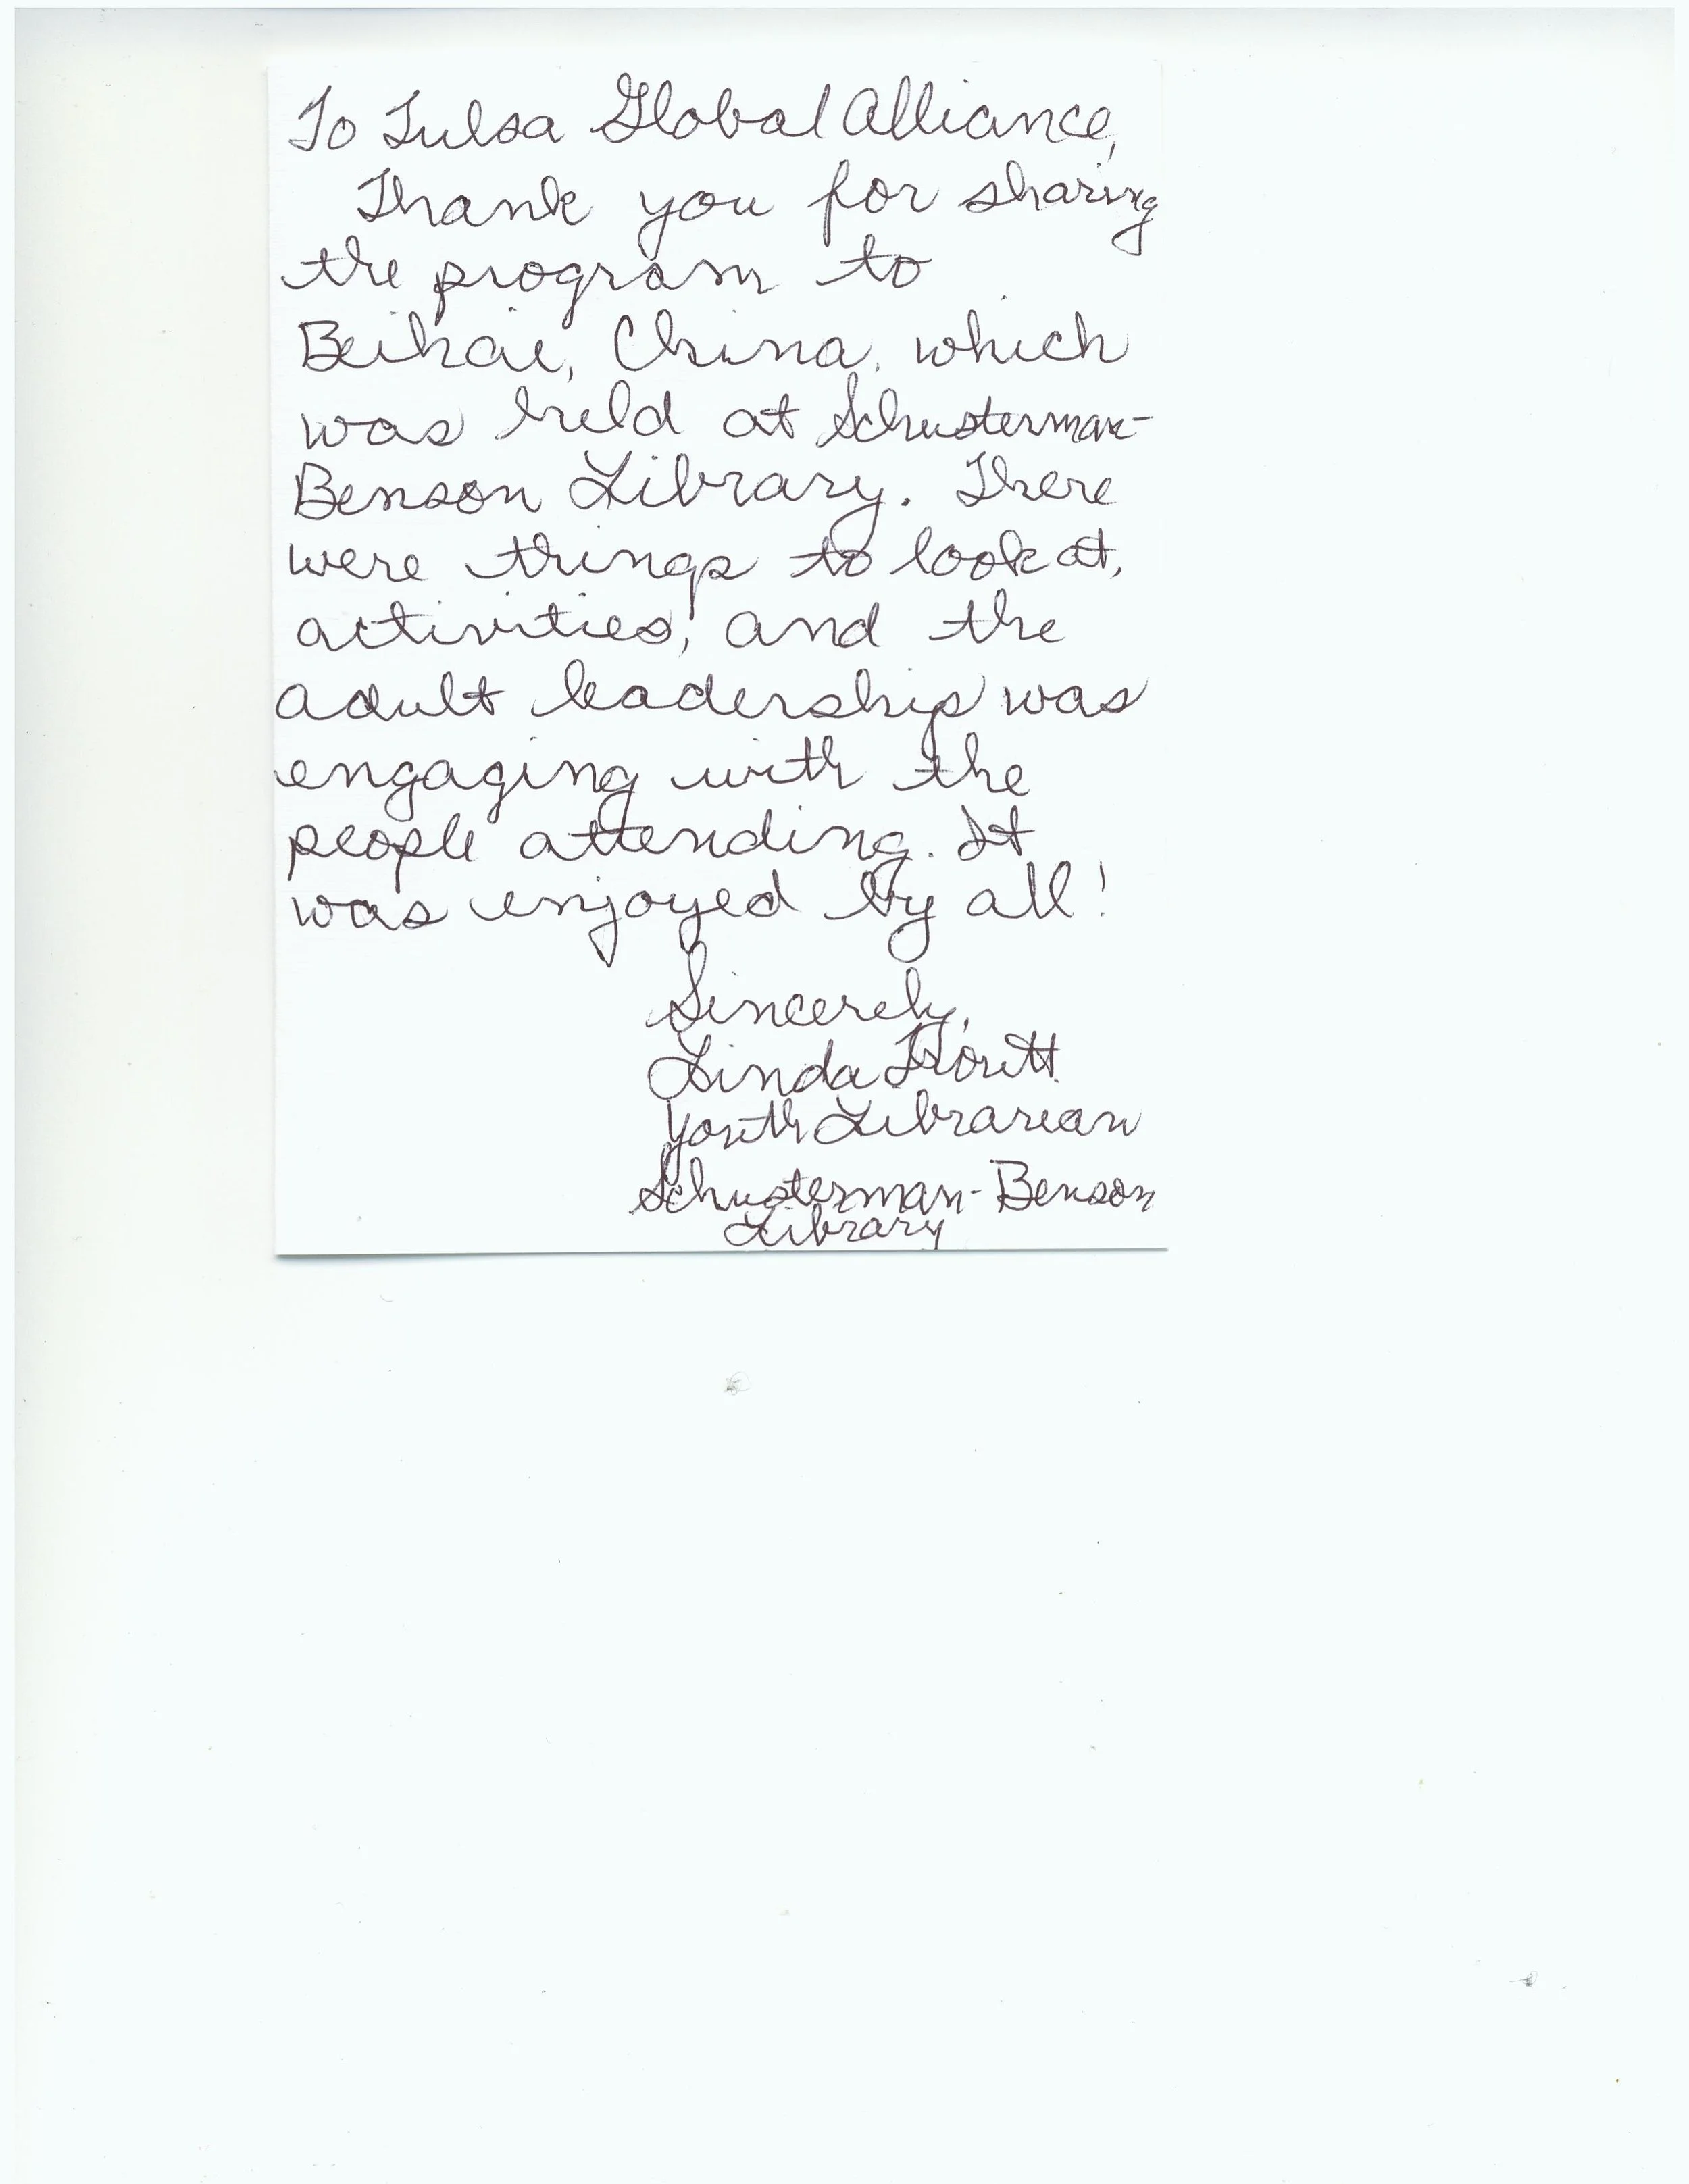 To Tulsa Global Alliance,
Thank you for sharing
the program to
Beihai, China, which
was held at Schusterman-
Benson Library. There
were things to look at,
activities, and the
adult leadership was
engaging with the
people attending. It
was enjoyed by all!
Sincerely,
Linda
Youth Librarian
Schusterman-Benson
Library